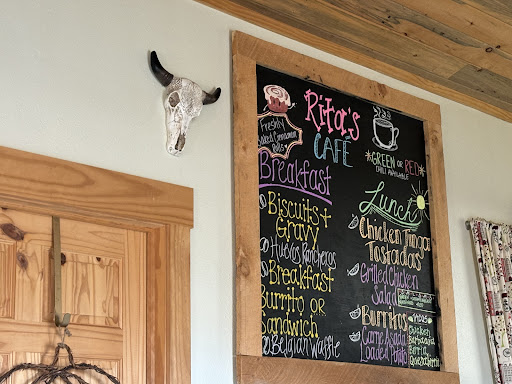 Rita's
CAFÉ
Freshly
Baked Cinnamon
Rolls
*GREEN OR RED*
CHILI AVAILABLE
Breakfast
Biscuits +
Gravy
Huevos Rancheros
Breakfast
Burrito OR
Sandwich
Belgian Waffle
Lunch
Chicken Tinga
Tostadas
Grilled Chicken
Salad
Burritos
Carne Asada
Loaded Potato
TACOS
Chicken
Barbacoa